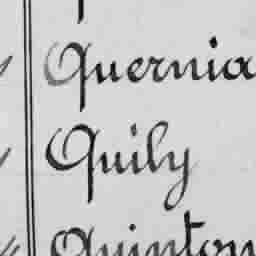 Quernia
Quily
Quinton